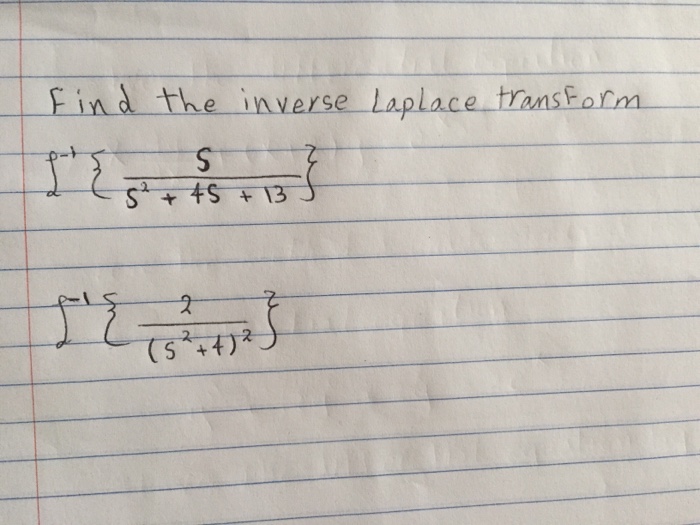 Find the inverse Laplace transform
ℒ⁻¹ { s / (s² + 4s + 13) }
ℒ⁻¹ { 2 / (s² + 4)² }